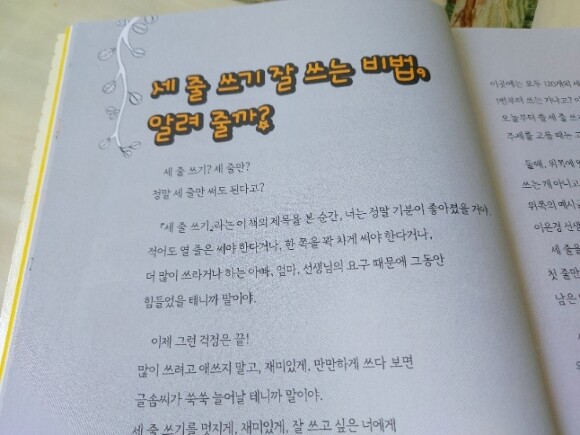 세 줄 쓰기 잘 쓰는 비법,
알려 줄까?
세 줄 쓰기? 세 줄만?
정말 세 줄만 써도 된다고?
『세 줄 쓰기』라는 이 책의 제목을 본 순간, 너는 정말 기분이 좋아졌을 거야.
적어도 열 줄은 써야 한다거나, 한 쪽을 꽉 차게 써야 한다거나,
더 많이 쓰라거나 하는 아빠, 엄마, 선생님의 요구 때문에 그동안
힘들었을 테니까 말이야.
이제 그런 걱정은 끝!
많이 쓰려고 애쓰지 말고, 재미있게, 만만하게 쓰다 보면
글솜씨가 쑥쑥 늘어날 테니까 말이야.
세 줄 쓰기를 멋지게, 재미있게, 잘 쓰고 싶은 너에게
이곳에는 모두 120개의
1번부터 쓰는 거냐고?
오늘부터 쓸 세 줄
주제를 고를 때는
둘째, 위쪽에
쓰는 게 아니고
위쪽의 예시
이은경 선생
세 줄을
첫 줄만
남은